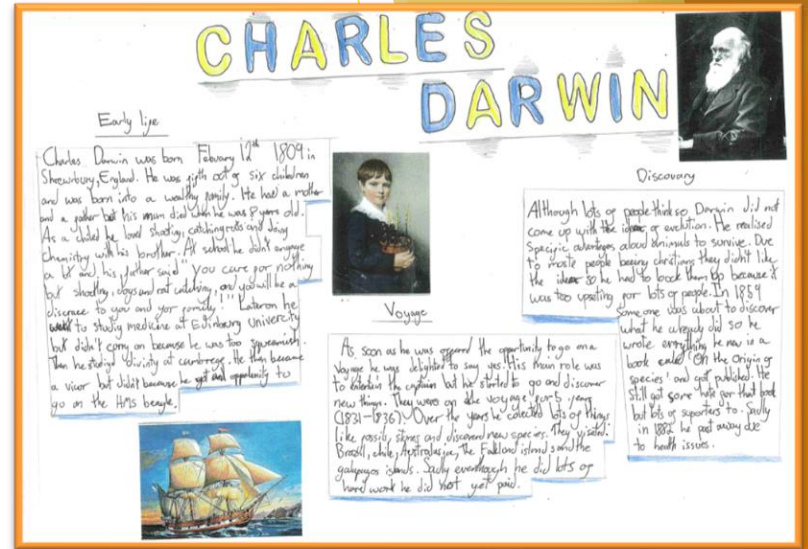 CHARLES
DARWIN
Early life
Charles Darwin was born Febuary 12th 1809 in
Shrewsbury, England. He was fifth out of six children
and was born into a wealthy family. He had a mother
and a father but his mum died when he was 8 years old.
As a child he loved shooting, catching rats and doing
chemistry with his brother. At school he didn't engage
a lot and his father said "You care for nothing
but shooting, dogs and rat catching, and you will be a
discrace to you and your family!" Later on he
went to study medicine at Edinburg univercity
but didn't carry on because he was too squeamish.
Then he studied divinity at cambrege. He then became
a vicar but didn't because he got and opportunity to
go on the HMS beagle.
Voyage
As soon as he was offered the oportunity to go on a
Voyage he was delighted to say yes. His main role was
to entertain the captain but he started to go and discover
new things. They were on the voyage for 5 years
(1831-1836). Over the years he colected lots of things
like fossils, skines and discoverd new species. They visited
Brazil, chile, Australasia, the Falkland islands and the
galapagos islands. Sadly eventhough he did lots of
hard work he did not get paid.
Discovary
Although lots of people think so Darwin did not
come up with the idea of evolution. He realised
Specific advantages aloud animals to survive. Due
to moste people being christians they didn't like
the ideas so he had to lock them up because it
was too upseting for lots of people. In 1859
some one was about to discover
what he already did so he
wrote everything he new in a
book called 'On the Origin of
species' and got published. He
still got some hate for that book
but lots of suporters to. Sadly
in 1882 he past away due
to health issues.